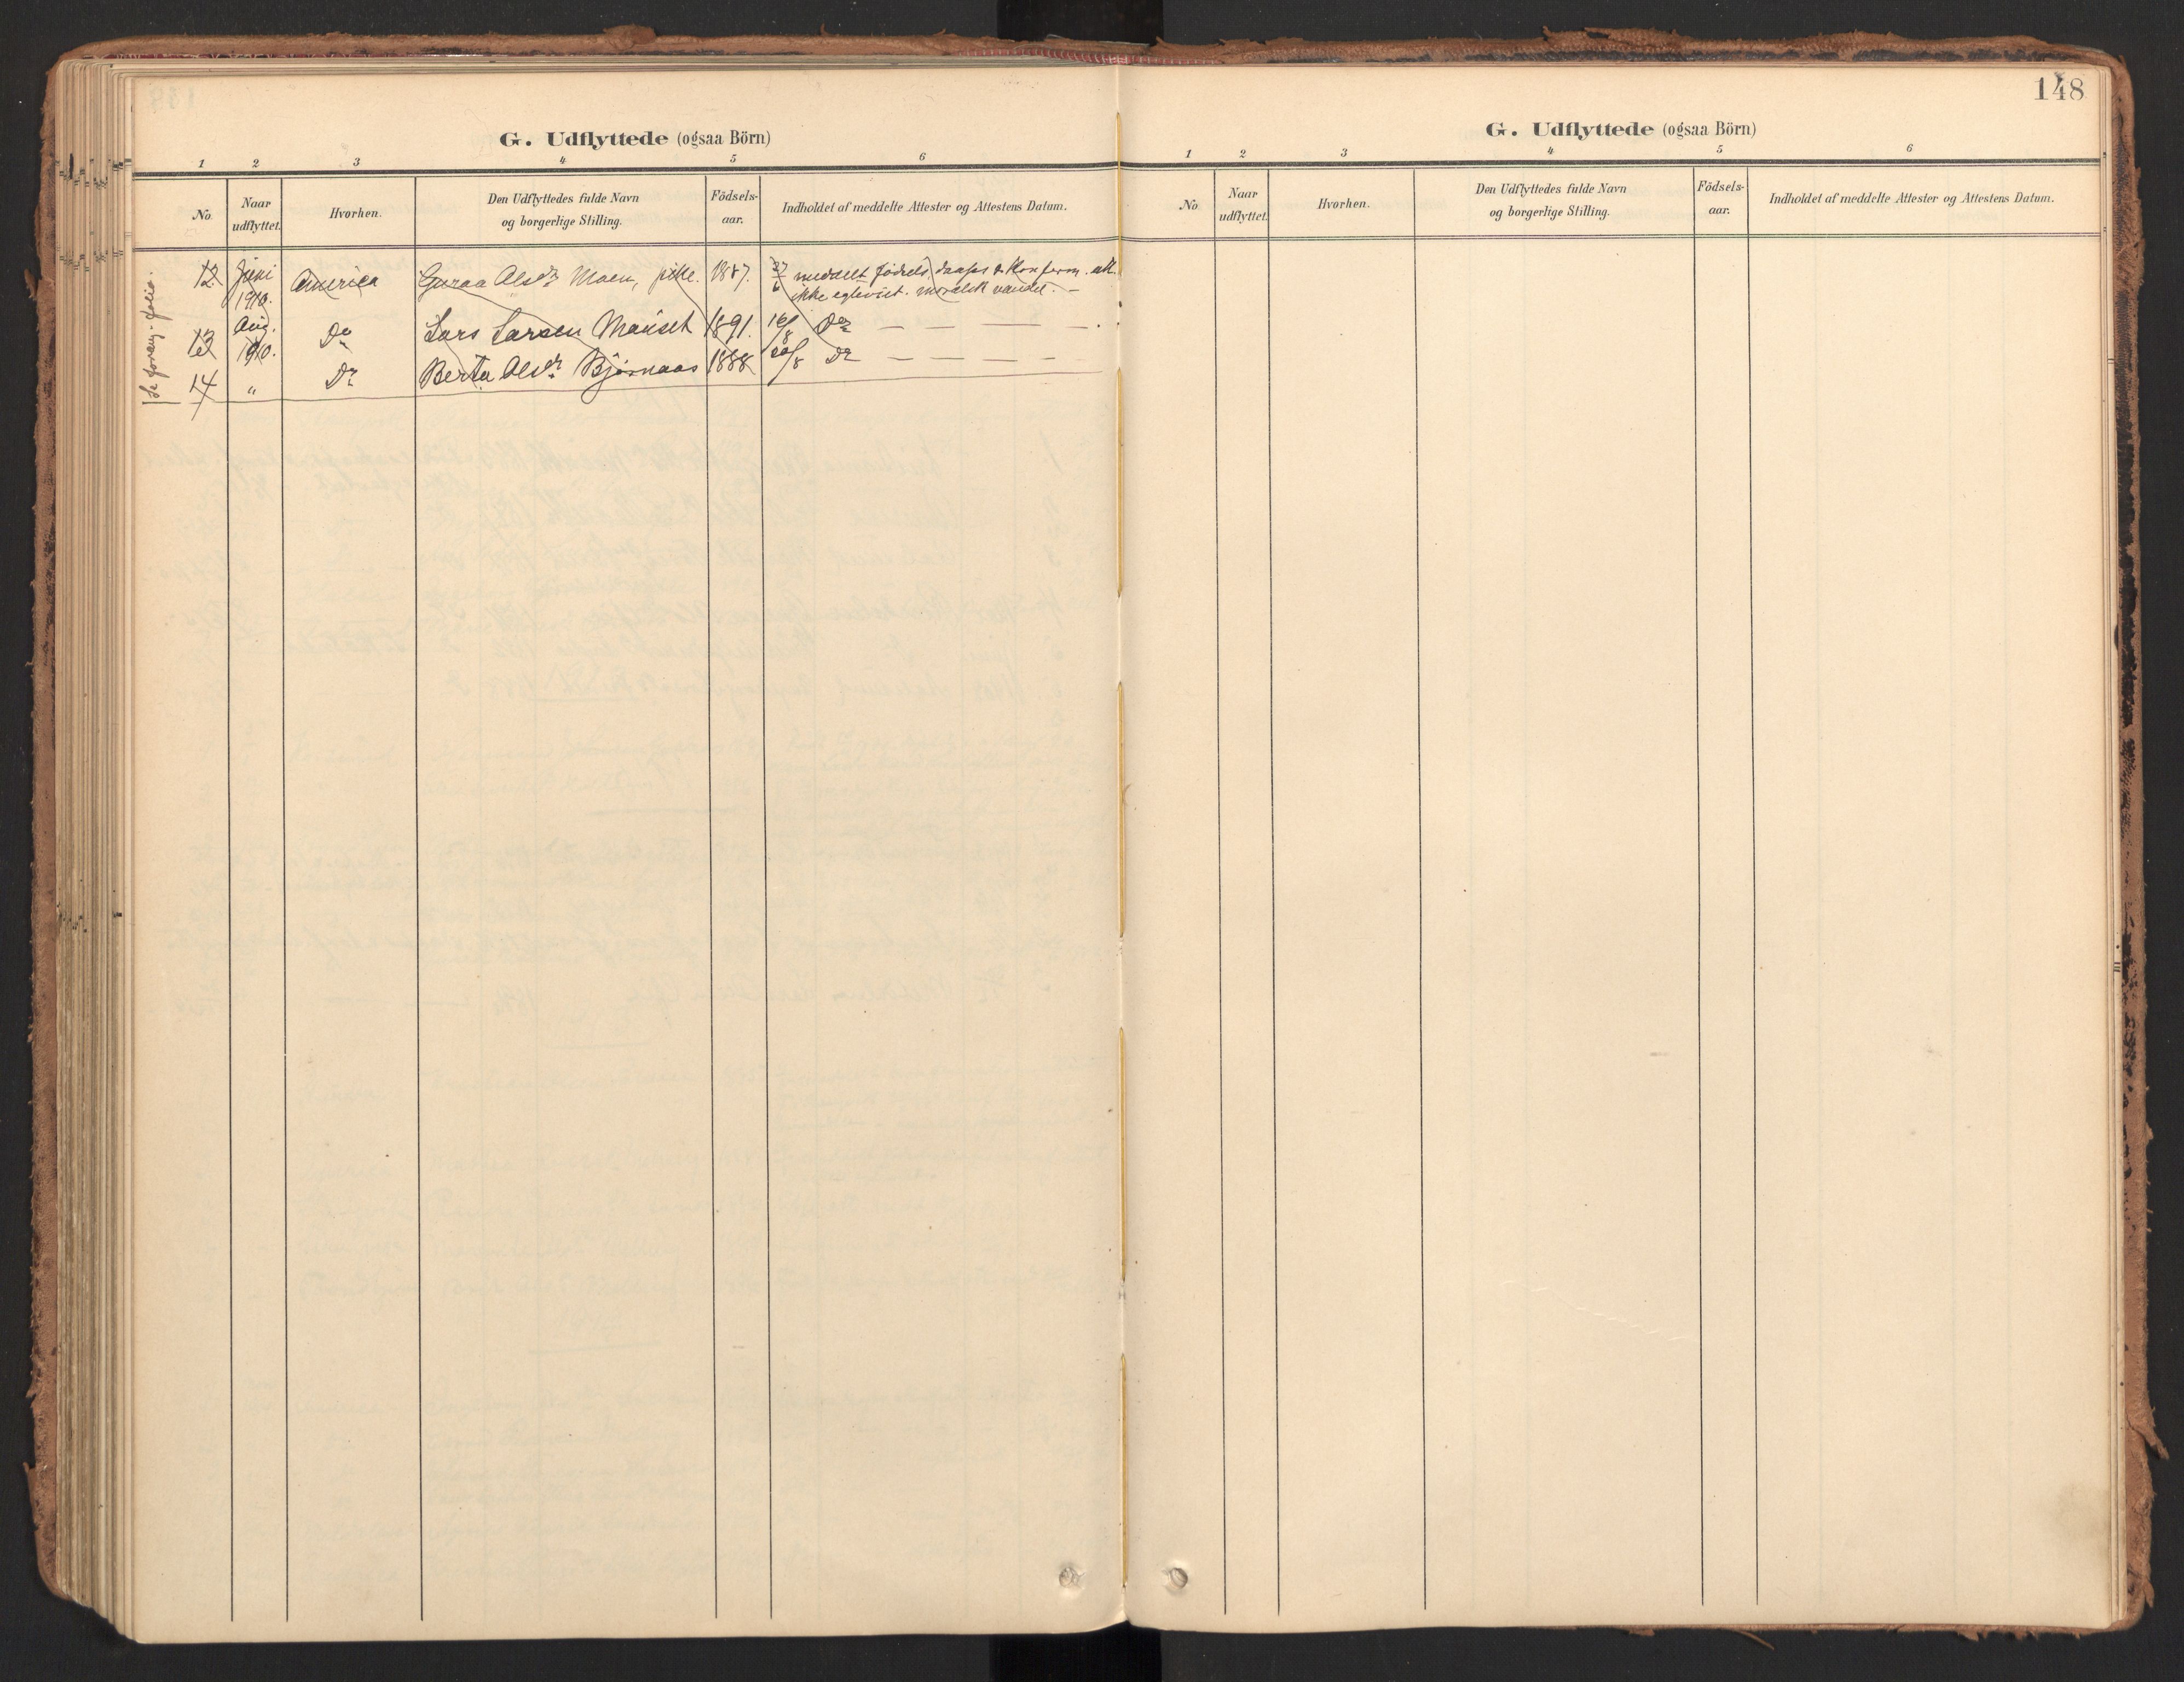 148
G. Udflyttede (ogsaa Börn)
1 2 3 4 5 6
No. Naar udflyttet. Hvorhen. Den Udflyttedes fulde Navn og borgerlige Stilling. Födsels-aar. Indholdet af meddelte Attester og Attestens Datum.
Se forrig folio.
12 Juni 1910. America Guraa Olsdr Moen, pike. 1887. 27/6 meddelt fødsels, daabs & Konferm. att.
ikke egteviet. moralsk vandel. —
13 Aug. 1910. Do Lars Larsen Mauset 1891. 16/8 Do — — — —
14 " Do Berta Olsdr Bjørnaas 1888 20/8 Do — — — —
G. Udflyttede (ogsaa Börn)
1 2 3 4 5 6
No. Naar udflyttet. Hvorhen. Den Udflyttedes fulde Navn og borgerlige Stilling. Födsels-aar. Indholdet af meddelte Attester og Attestens Datum.